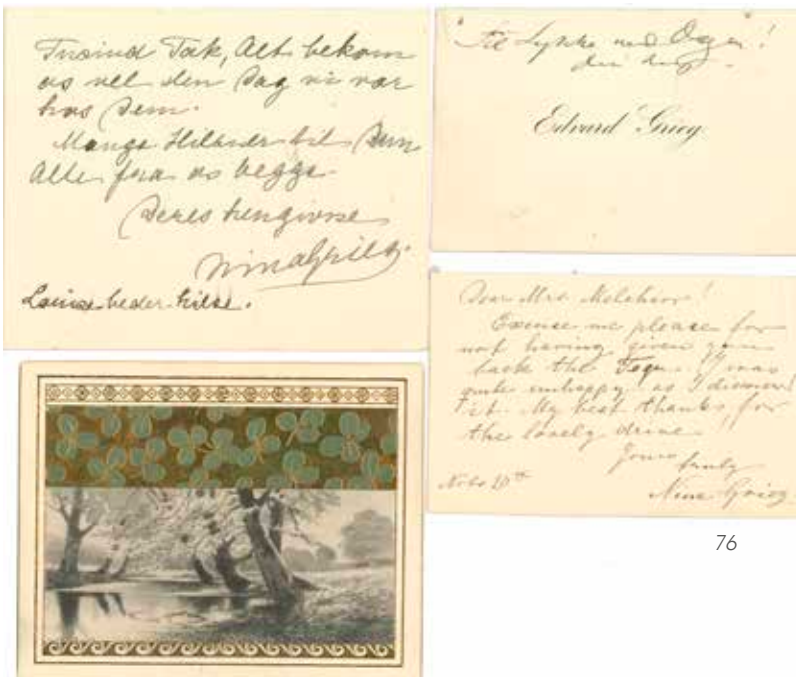 Tusind Tak, Alt bekom
os vel den Dag vi var
hos Dem.
Mange Hilsner til Dem
Alle fra os begge.
Deres hengivne
Nina Grieg.
Louise beder hilse.
"Til Lykke med Dagen"!
Edvard Grieg
Dear Mrs. Melchior!
Excuse me please for
not having given you
back the I was
quite unhappy as I discovered
it. My best thanks for
the lovely drive
Yours truly
Nina Grieg
76